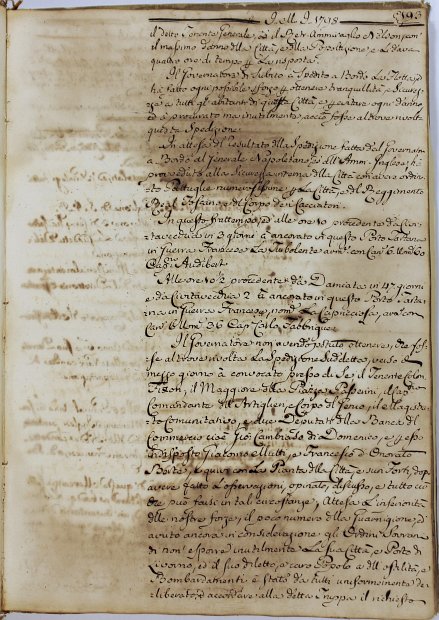 e Delli D. 1798
il detto Tenente Generale, ed il Reer Ammiraglio Nelson
il massimo danno della Città, e della Popolazione, e Li dava
quattro ore di tempo p. La risposta.
Il Governatore à subito à Spedito a Bordo La Flotta, ed
hà fatto ogni possibile sforzo p. ottenere tranquillità, e Sicurez
za a tutti gl'abitanti di questa Città, e p. evitare ogni danno,
ed à procurato ma inutilmente acciò fosse altrove rivolta
questa Spedizione.
In attesa del resultato della Spedizione fatta dal Governatore
a Bordo al Generale Napoletano, ed all'Amm. Inglese, hà
proveduto alla Sicurezza interna della Città con avere ordina
to Pattuglie numerosissime p. La Città, e del Reggimento
Real Toscano, e del Corpo dei Cacciatori.
In questo frattempo, ed alle ore procedente da Civi
tavecchia in giorni à ancorato in questo Porto Tartana
in Guerra Francese La Turbolente arm. con Can. 6 Uom. 30
Cap. Audibert.
Alle ore procedente da Damiata in 47 giorni
e da Civitavecchia 2 è ancorato in questo Porto Tarta
na in Guerra Francese, nom. La Capricciosa, arm. con
Can. 6 Uom. 36 Cap. Carlo
Il Governatore non avendo potuto ottenere, che fos
se altrove rivolta La Spedizione Suddetta, verso il
mezzo giorno à convocato presso di Se il Tenente Colon.
il Maggiore della Piazza il
Comandante di Artiglieria, e Corpo di Genio, il Magistra
to Comunitativo, e due Deputati della Banca del
Commercio cioè Gio. Cambiaso di Domenico, e
Antonio e Francesco d'Onorato
Berte, e quivi con La Pianta della Città, e suoi Forti, do
po avere fatto L'osservazioni, opinato, discusso, e tutto ciò
che può farsi in tal circostanze, Attesa L'inferiorità
delle nostre forze, il poco numero della Guarnigione, ed
avuto ancora in considerazione gli Ordini Sovrani
di non esporre inutilmente La sua Città, e Porto di
Livorno, ed il suo diletto, e caro Popolo a dell'ostilità, e
Bombardamenti è Stato da tutti uniformemente de
liberato, d'accordare alla detta Truppa il richiesto